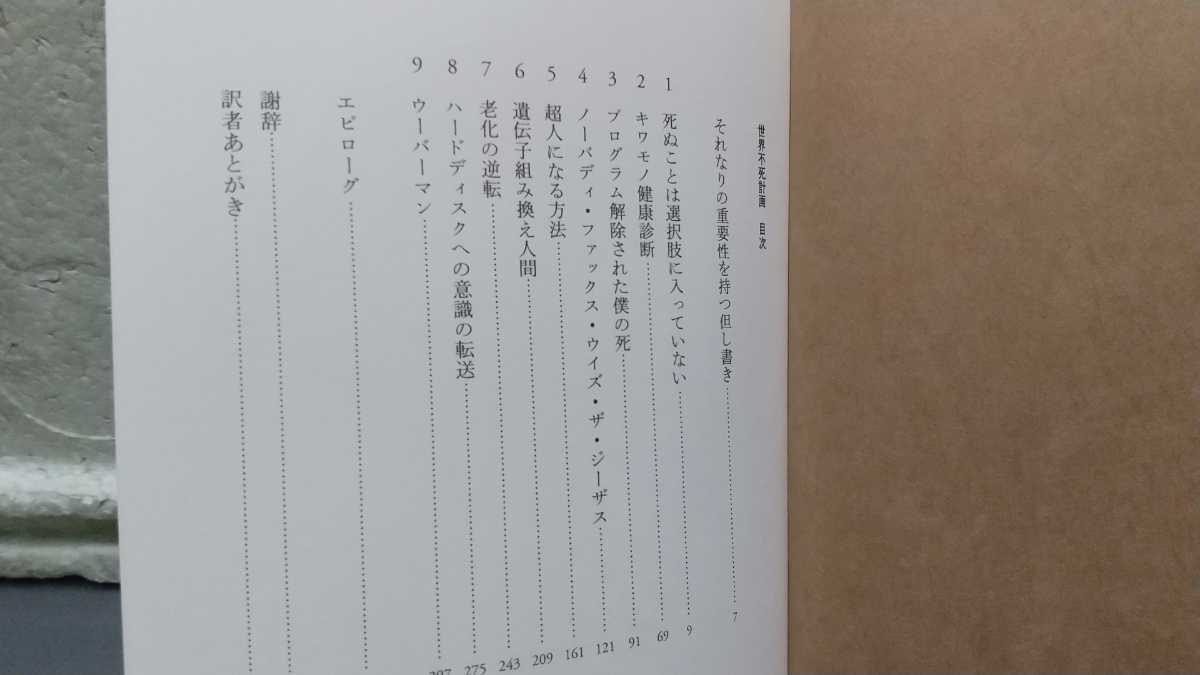 世界不死計画 目次
それなりの重要性を持つ但し書き……7
1 死ぬことは選択肢に入っていない……9
2 キワモノ健康診断……69
3 プログラム解除された僕の死……91
4 ノーバディ・ファックス・ウイズ・ザ・ジーザス……121
5 超人になる方法……161
6 遺伝子組み換え人間……209
7 老化の逆転……243
8 ハードディスクへの意識の転送……275
9 ウーバーマン……
エピローグ……
謝辞……
訳者あとがき……